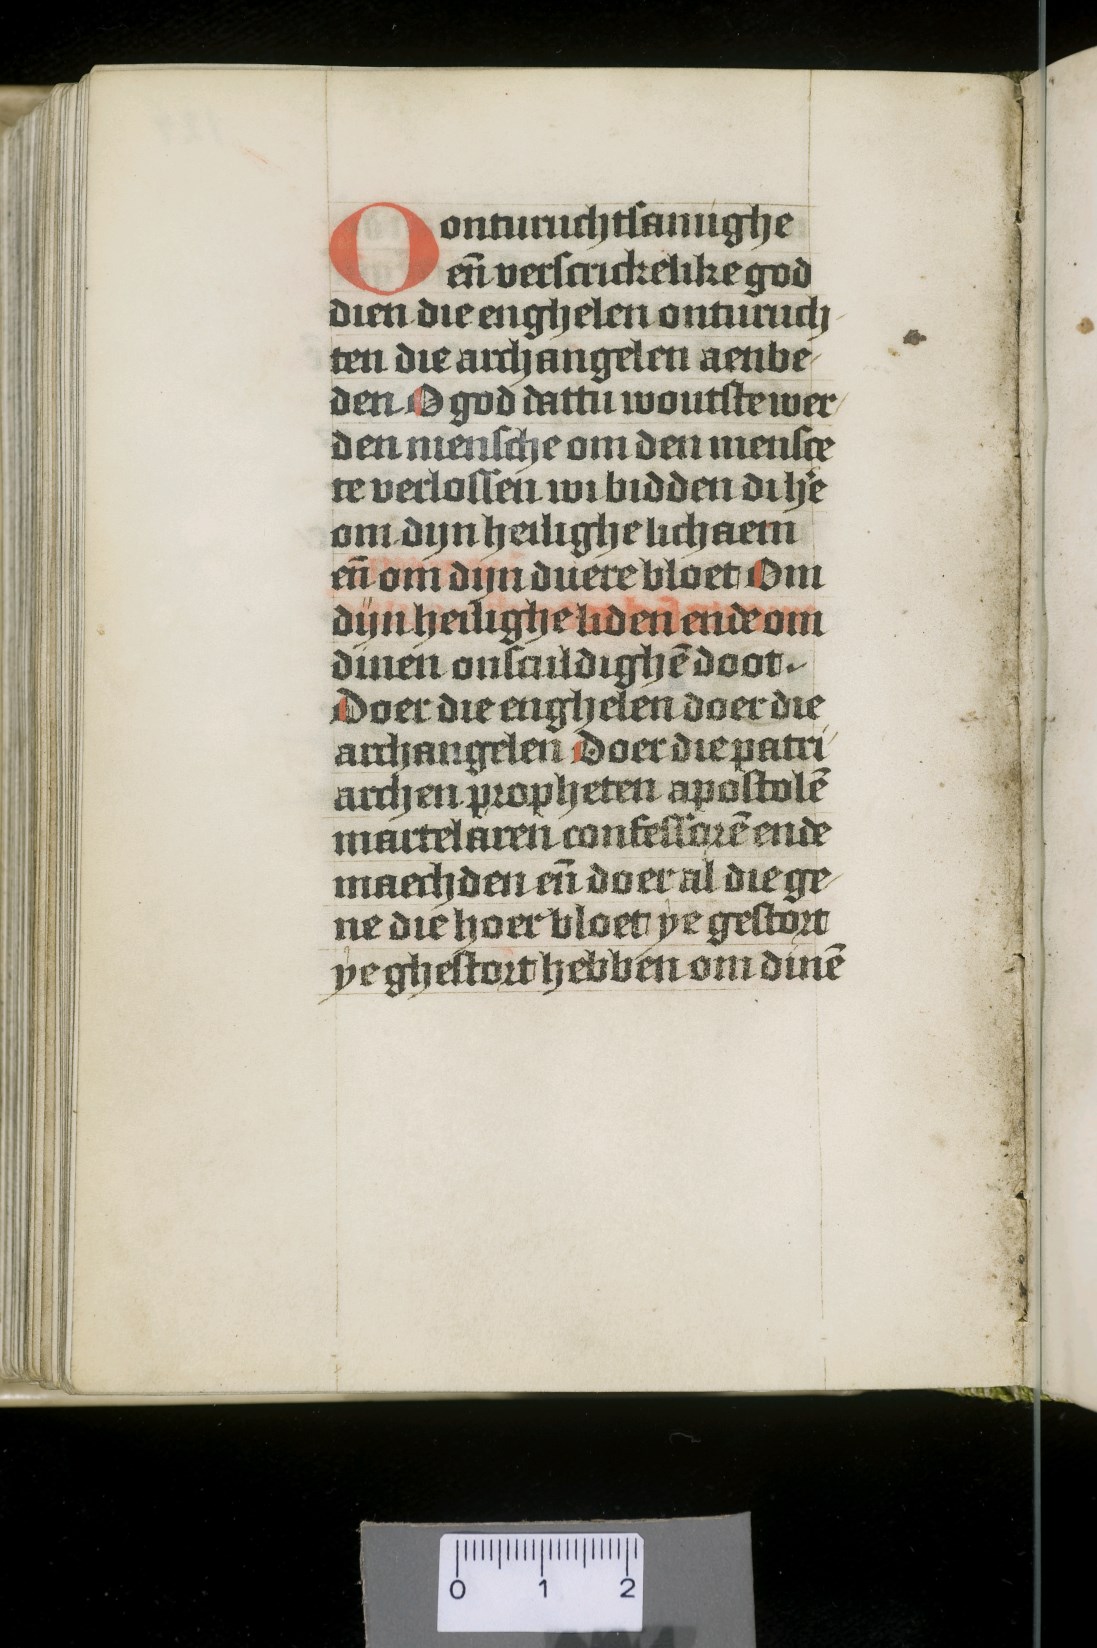 O onturuchtsamighe
en̄ verscrickelike god
dien die enghelen onturuch
ten die archangelen aenbe
den O god dattu woutste wer
den mensche om den mensce
te verlossen wi bidden di hēe
om dyn heilighe lichaem
en̄ om dijn duere bloet Om
dijn heilighe liden ende om
dinen onsculdighē doot
Doer die enghelen doer die
archangelen Doer die patri
archen propheten apostolē
martelaren confessorē ende
maechden en̄ doer al die ge
ne die hoer bloet ye gestort
ye ghestort hebben om dinē
0 1 2